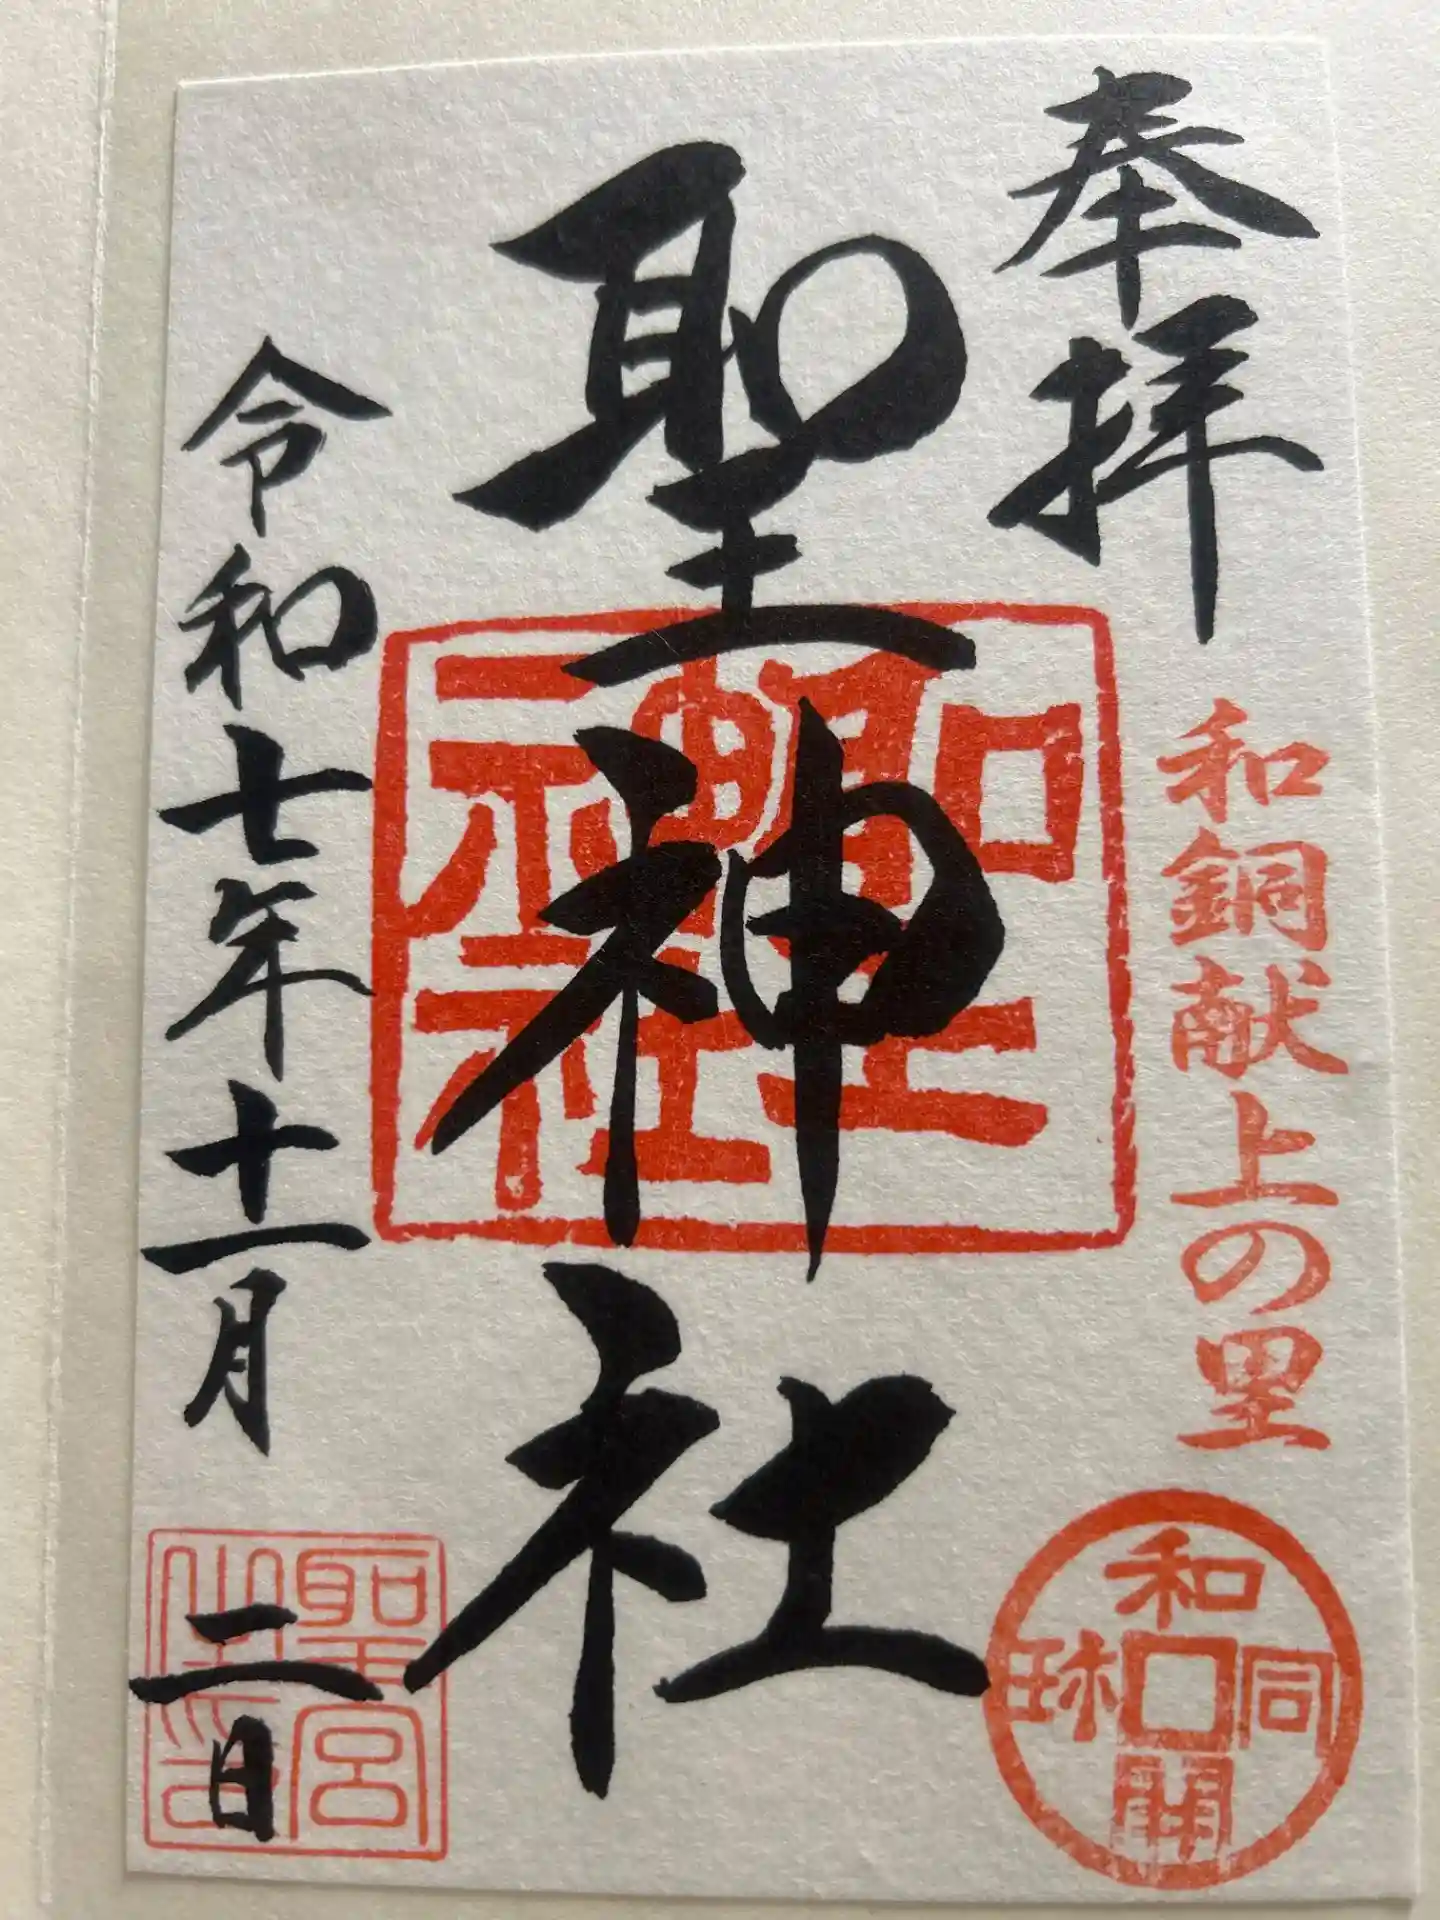 奉拝
和銅献上の里
和同開珎
聖神社
聖神社
令和七年十一月二日
聖宮